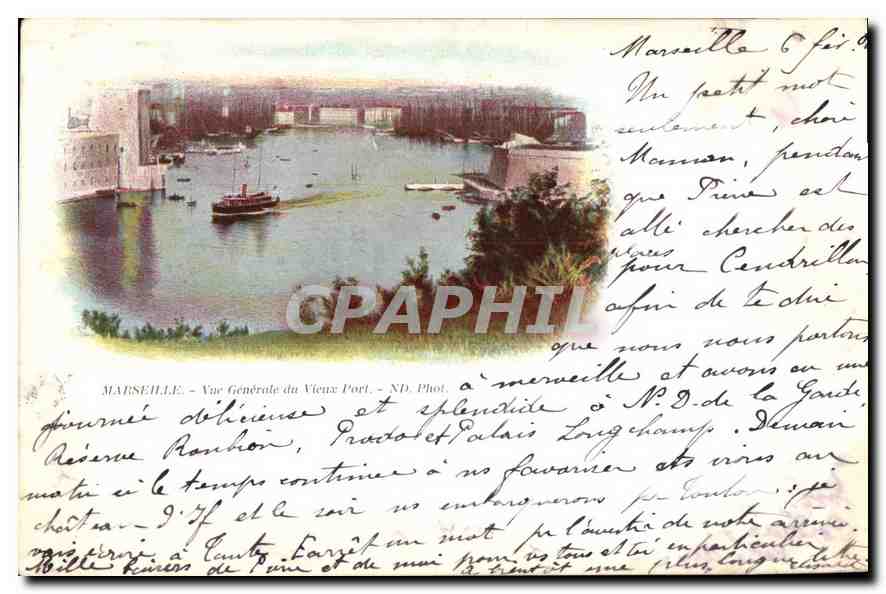 Marseille 6 fév.
Un petit mot
seulement, chère
Maman, pendan
que Pierre est
allé chercher des
places
pour Cendrillon
afin de te dire
que nous nous portons
CPAPHIL
MARSEILLE. - Vue Générale du Vieux Port. - ND. Phot.
à merveille et avons eu une
journée délicieuse et splendide à N.D. de la Garde
Réserve Roubion, Prado et Palais Longchamp. Demain
matin si le temps continue à ns favoriser ns irons au
château-d'If et le soir ns embarquerons pr Toulon : je
vais écrire à Tante un mot pr l'avertir de notre arrivée.
Mille baisers de Pierre et de moi pour vs tous et toi en particulier
à bientôt une plus longue lettre